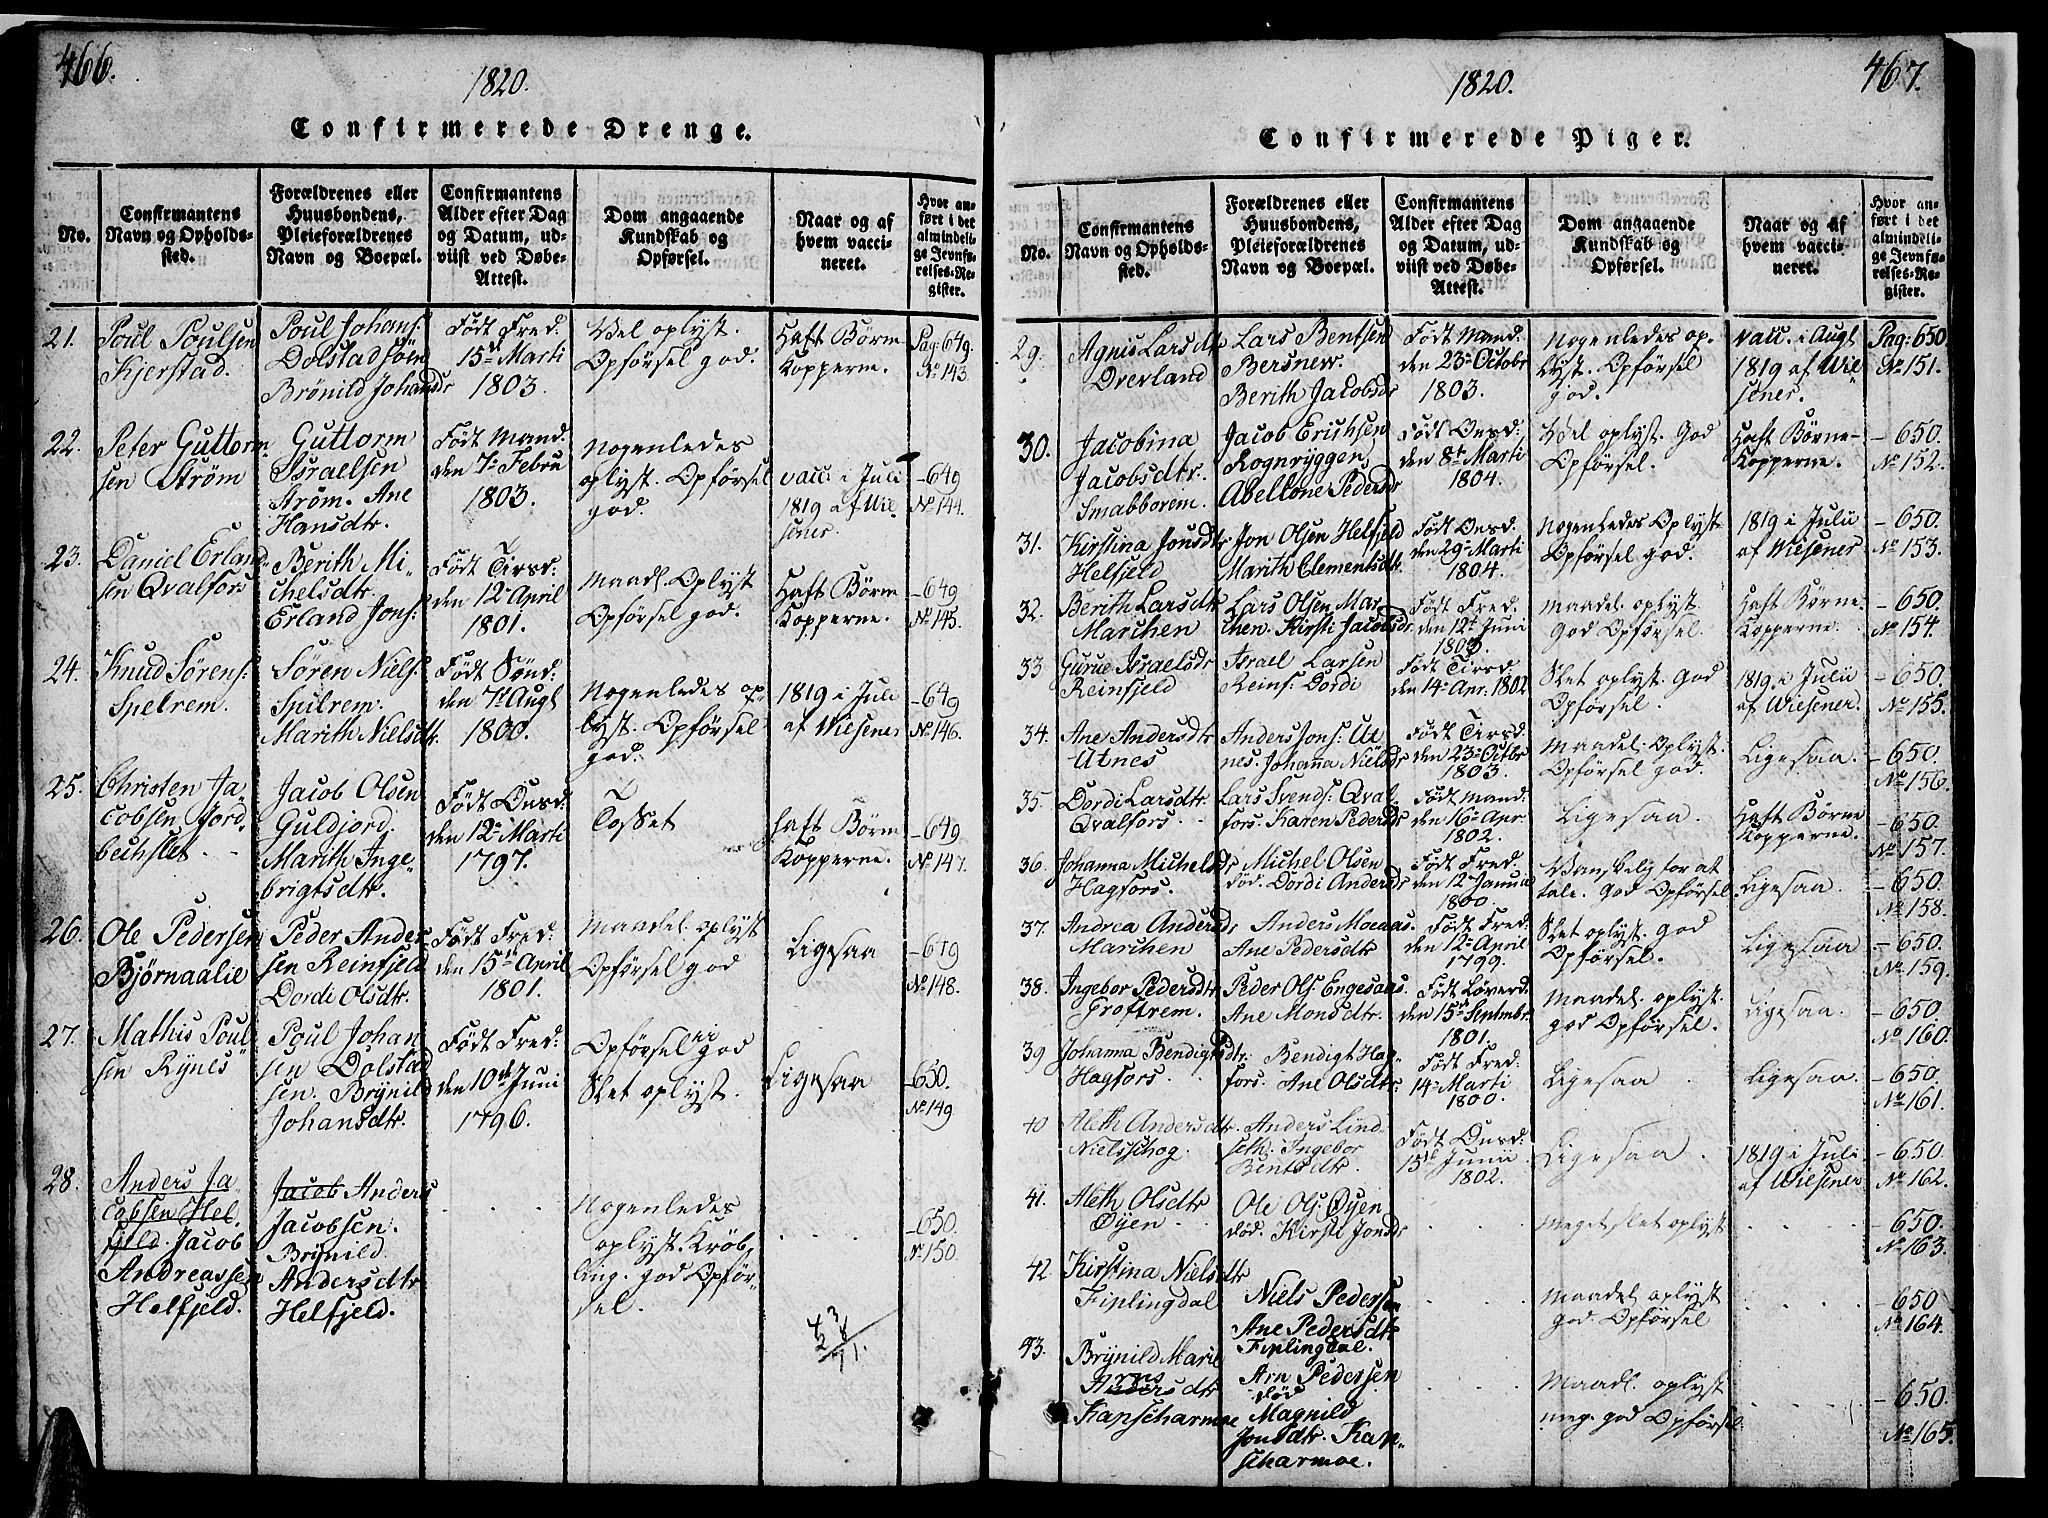 466.
1820.
Confirmerede Drenge.
No.
Confirmantens
Navn og Opholds-
sted.
Forældrenes eller
Huusbondens,
Pleieforældrenes
Navn og Boepæl.
Confirmantens
Alder efter Dag
og Datum, ud-
viist ved Døbe-
Attest.
Dom angaaende
Kundskab og
Opførsel.
Naar og af
hvem vacci-
neret.
Hvor an-
ført i det
almindeli-
ge Jevnfø-
relses-Re-
gister.
21.
Poul Poulsen
Kjerstad.
Poul Johans:
Dolstad søm
Brönild Johansdr
Födt Fred.
15de Marti
1803.
Vel oplyst.
Opførsel god.
Haft Börne
Kopperne.
Pag: 649.
No 143.
22.
Peter Guttorm
sen Ström
Guttorm
Israelsen
Ström. Ane
Hansdtr.
Födt Mand.
den 7de Febru
1803.
Nogenledes
oplyst. Opførsel
god.
vacc i Juli
1819 af Wie
sener.
– 649
No 144.
23.
Daniel Erland
sen Qvalfors
Berith Mi
chelsdtr.
Erland Jons:
Födt Tirsd:
den 12te April
1801.
Maadl. Oplyst
Opførsel god.
Haft Börne
Kopperne.
– 649
No 145.
24.
Knud Sörens:
Spelrem.
Sören Niels:
Spilrem.
Marith Nielsdtr.
Födt Sönd:
den 7de Augt
1800.
Nogenledes op
lyst. Opførsel
god.
1819 i Juli
af Wiesener
– 649
No 146.
25.
Christen Ja
cobsen Jord
bechslet.
Jacob Olsen
Guldjord.
Marith Inge
brigtsdtr.
Födt Onsd:
den 12te Marti
1797.
Tosset
haft Börne
Kopperne.
– 649
No 147.
26.
Ole Pedersen
Bjørnaalie
Peder Ander
sen Reinfjeld
Dordi Olsdtr.
Födt Fred:
den 15de April
1801.
Maadel. oplyst
Opførsel god
Ligesaa
– 649
No 148.
27.
Mathis Poul
sen Rynes
Poul Johan
sen Dolstad
sen. Brynild
Johansdtr.
Födt Fred:
den 10de Juni
1796.
Opførsel god
Slet oplyst.
Ligesaa
– 650.
No 149.
28.
Anders Ja
cobsen Hel
fjeld. Jacob
Andreassen
Helfjeld.
Jacob Anders
Jacobsen.
Brynild
Andersdtr
Helfjeld.
Nogenledes
oplyst. Kröb
ling. god Opför
sel.
– 650.
No 150.
43
28
71.
467.
1820.
Confirmerede Piger.
No.
Confirmantens
Navn og Opholds-
sted.
Forældrenes eller
Huusbondens,
Pleieforældrenes
Navn og Boepæl.
Confirmantens
Alder efter Dag
og Datum, ud-
viist ved Døbe-
Attest.
Dom angaaende
Kundskab og
Opførsel.
Naar og af
hvem vacci-
neret.
Hvor an-
ført i det
almindeli-
ge Jevnfø-
relses-Re-
gister.
29.
Agnis Larsdtr
Overland
Lars Bentsen
Bersnew.
Berith Jacobsdr
Födt Mand:
den 23de Octobr
1803.
Nogenledes op
lyst. Opførsel
god.
vacc. i Augt
1819 af Wie
sener.
Pag: 650
No 151.
30.
Jacobina
Jacobsdtr.
Smabborem.
Jacob Erichsen
Rognryggen
Abellone Pedersdr
Födt Onsd:
den 8de Marti
1804.
Vel oplyst. God
Opførsel.
Haft Börne-
Kopperne.
– 650.
No 152.
31.
Kirstina Jonsdtr
Helfjeld
Jon Olsen Helfjeld
Marith Clementsdtr.
Födt Onsd:
den 29de Marti
1804.
Nogenledes Oplyst
Opførsel god.
1819 i Julii
af Wiesener
– 650.
No 153.
32.
Berith Larsdtr
Marchen
Lars Olsen Mar
chen. Kirsti Jacobsdr
Födt Fred.
den 12te Juni
1803.
Maadel. oplyst.
God Opførsel.
Haft Börne
Kopperne.
– 650.
No 154.
33
Gurue Israelsdr
Reinfjeld
Israel Larsen
Reinf: Dordi
Födt Tirsd:
den 14de Apr: 1802
Slet oplyst. God
Opførsel.
1819 i Julii
af Wiesener.
– 650.
No 155.
34.
Ane Andersdtr
Utnes
Anders Jons: Ut
nes. Johanna Nielsdr
Födt Tirsd:
den 23de Octbr
1803.
Maadel: Oplyst.
Opførsel god.
Ligesaa.
– 650.
No 156.
35.
Dordi Larsdtr.
Qvalfors.
Lars Svends: Qval
fors. Karen Pedersdr
Födt Mand:
den 16de Apr:
1802.
Ligesaa.
Haft Börne
Kopperne.
– 650.
No 157.
36.
Johanna Michelsdr
Hagfors.
Michel Olsen
död. Dordi Andersdr
Födt Fred:
den 12te Janua
1800.
Vanskelig for at
tale. God Opførsel
Ligesaa.
– 650.
No 158.
37.
Andrea Andersdr
Marchen
Anders Moeaas.
Ane Pedersdtr
Födt Fred:
den 12te April
1799.
Slet oplyst. god
Opførsel.
Ligesaa
– 650.
No 159.
38.
Ingebor Pedersdtr
Groftrem.
Peder Ols: Engesaas.
Ane Monsdtr.
Födt Löverd:
den 15de Septmbr.
1801.
Maadel. oplyst.
god Opførsel.
Ligesaa.
– 650.
No 160.
39
Johanna Bendigtsdtr.
Hagfors.
Bendigt Hag
fors. Ane Olsdtr.
Födt Fred:
14de Marti
1800.
Ligesaa
Ligesaa.
– 650.
No 161.
40
Aleth Andersdtr.
Nielsschog.
Anders Lind
seth. Ingebor
Bentsdtr.
Födt Onsd:
15de Junii
1802.
Ligesaa.
1819 i Juli
af Wiesener
– 650.
No 162.
41.
Aleth Olsdtr
Öyen
Ole Ols: Öyen
död. Kirsti Jonsdr
Meget slet oplyst
– 650.
No 163.
42
Kirstina Nielsdtr
Fiplingdal
Niels Pedersen
Ane Pedersdtr
Fiplingdal.
Maadel oplyst
god. Opførsel
– 650
No 164.
43.
Brynild Marie
Arns
Andersdtr
Kapscharmoe
Arn Pedersen
död
Magnild
Jonsdtr. Kap
scharmoe.
Maadl. oplyst
meg. god Opførsel
– 650.
No 165.